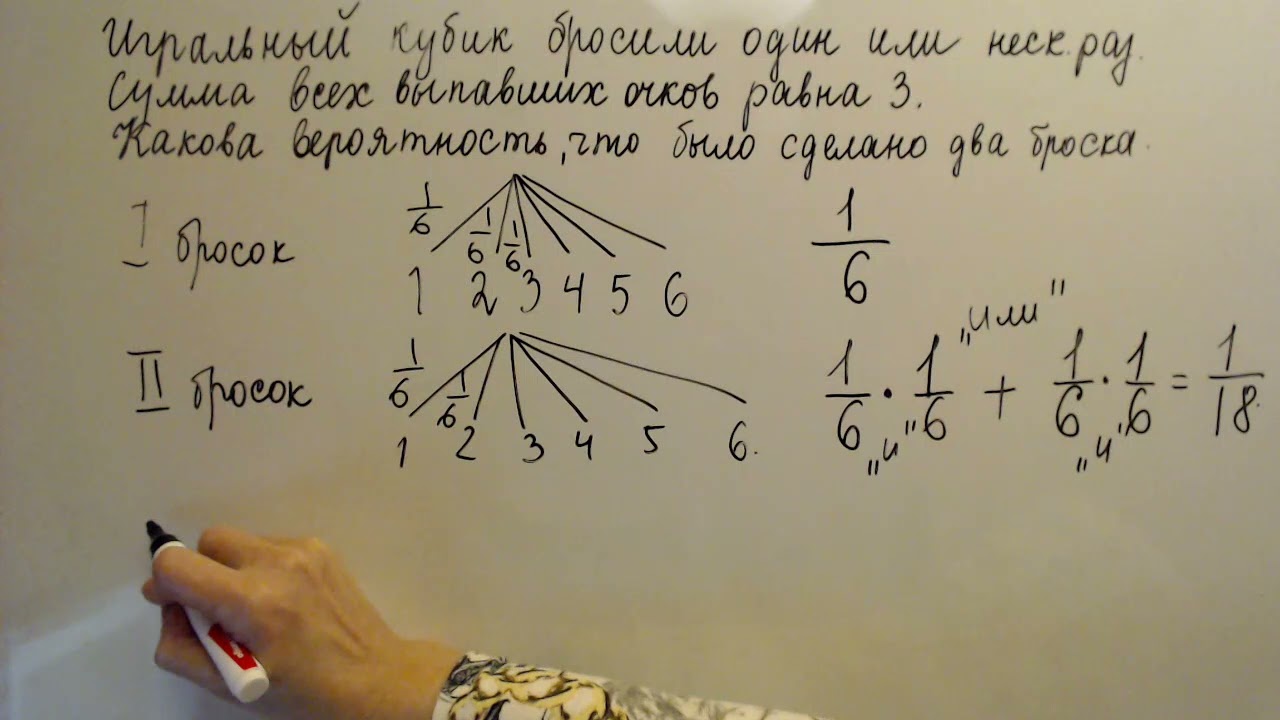 Игральный кубик бросили один или неск. раз.
Сумма всех выпавших очков равна 3.
Какова вероятность, что было сделано два броска.
I бросок
1/6 1/6 1/6
1 2 3 4 5 6
1/6
II бросок
1/6 1/6
1 2 3 4 5 6.
„или"
1/6 · 1/6 + 1/6 · 1/6 = 1/18.
„и" „и"